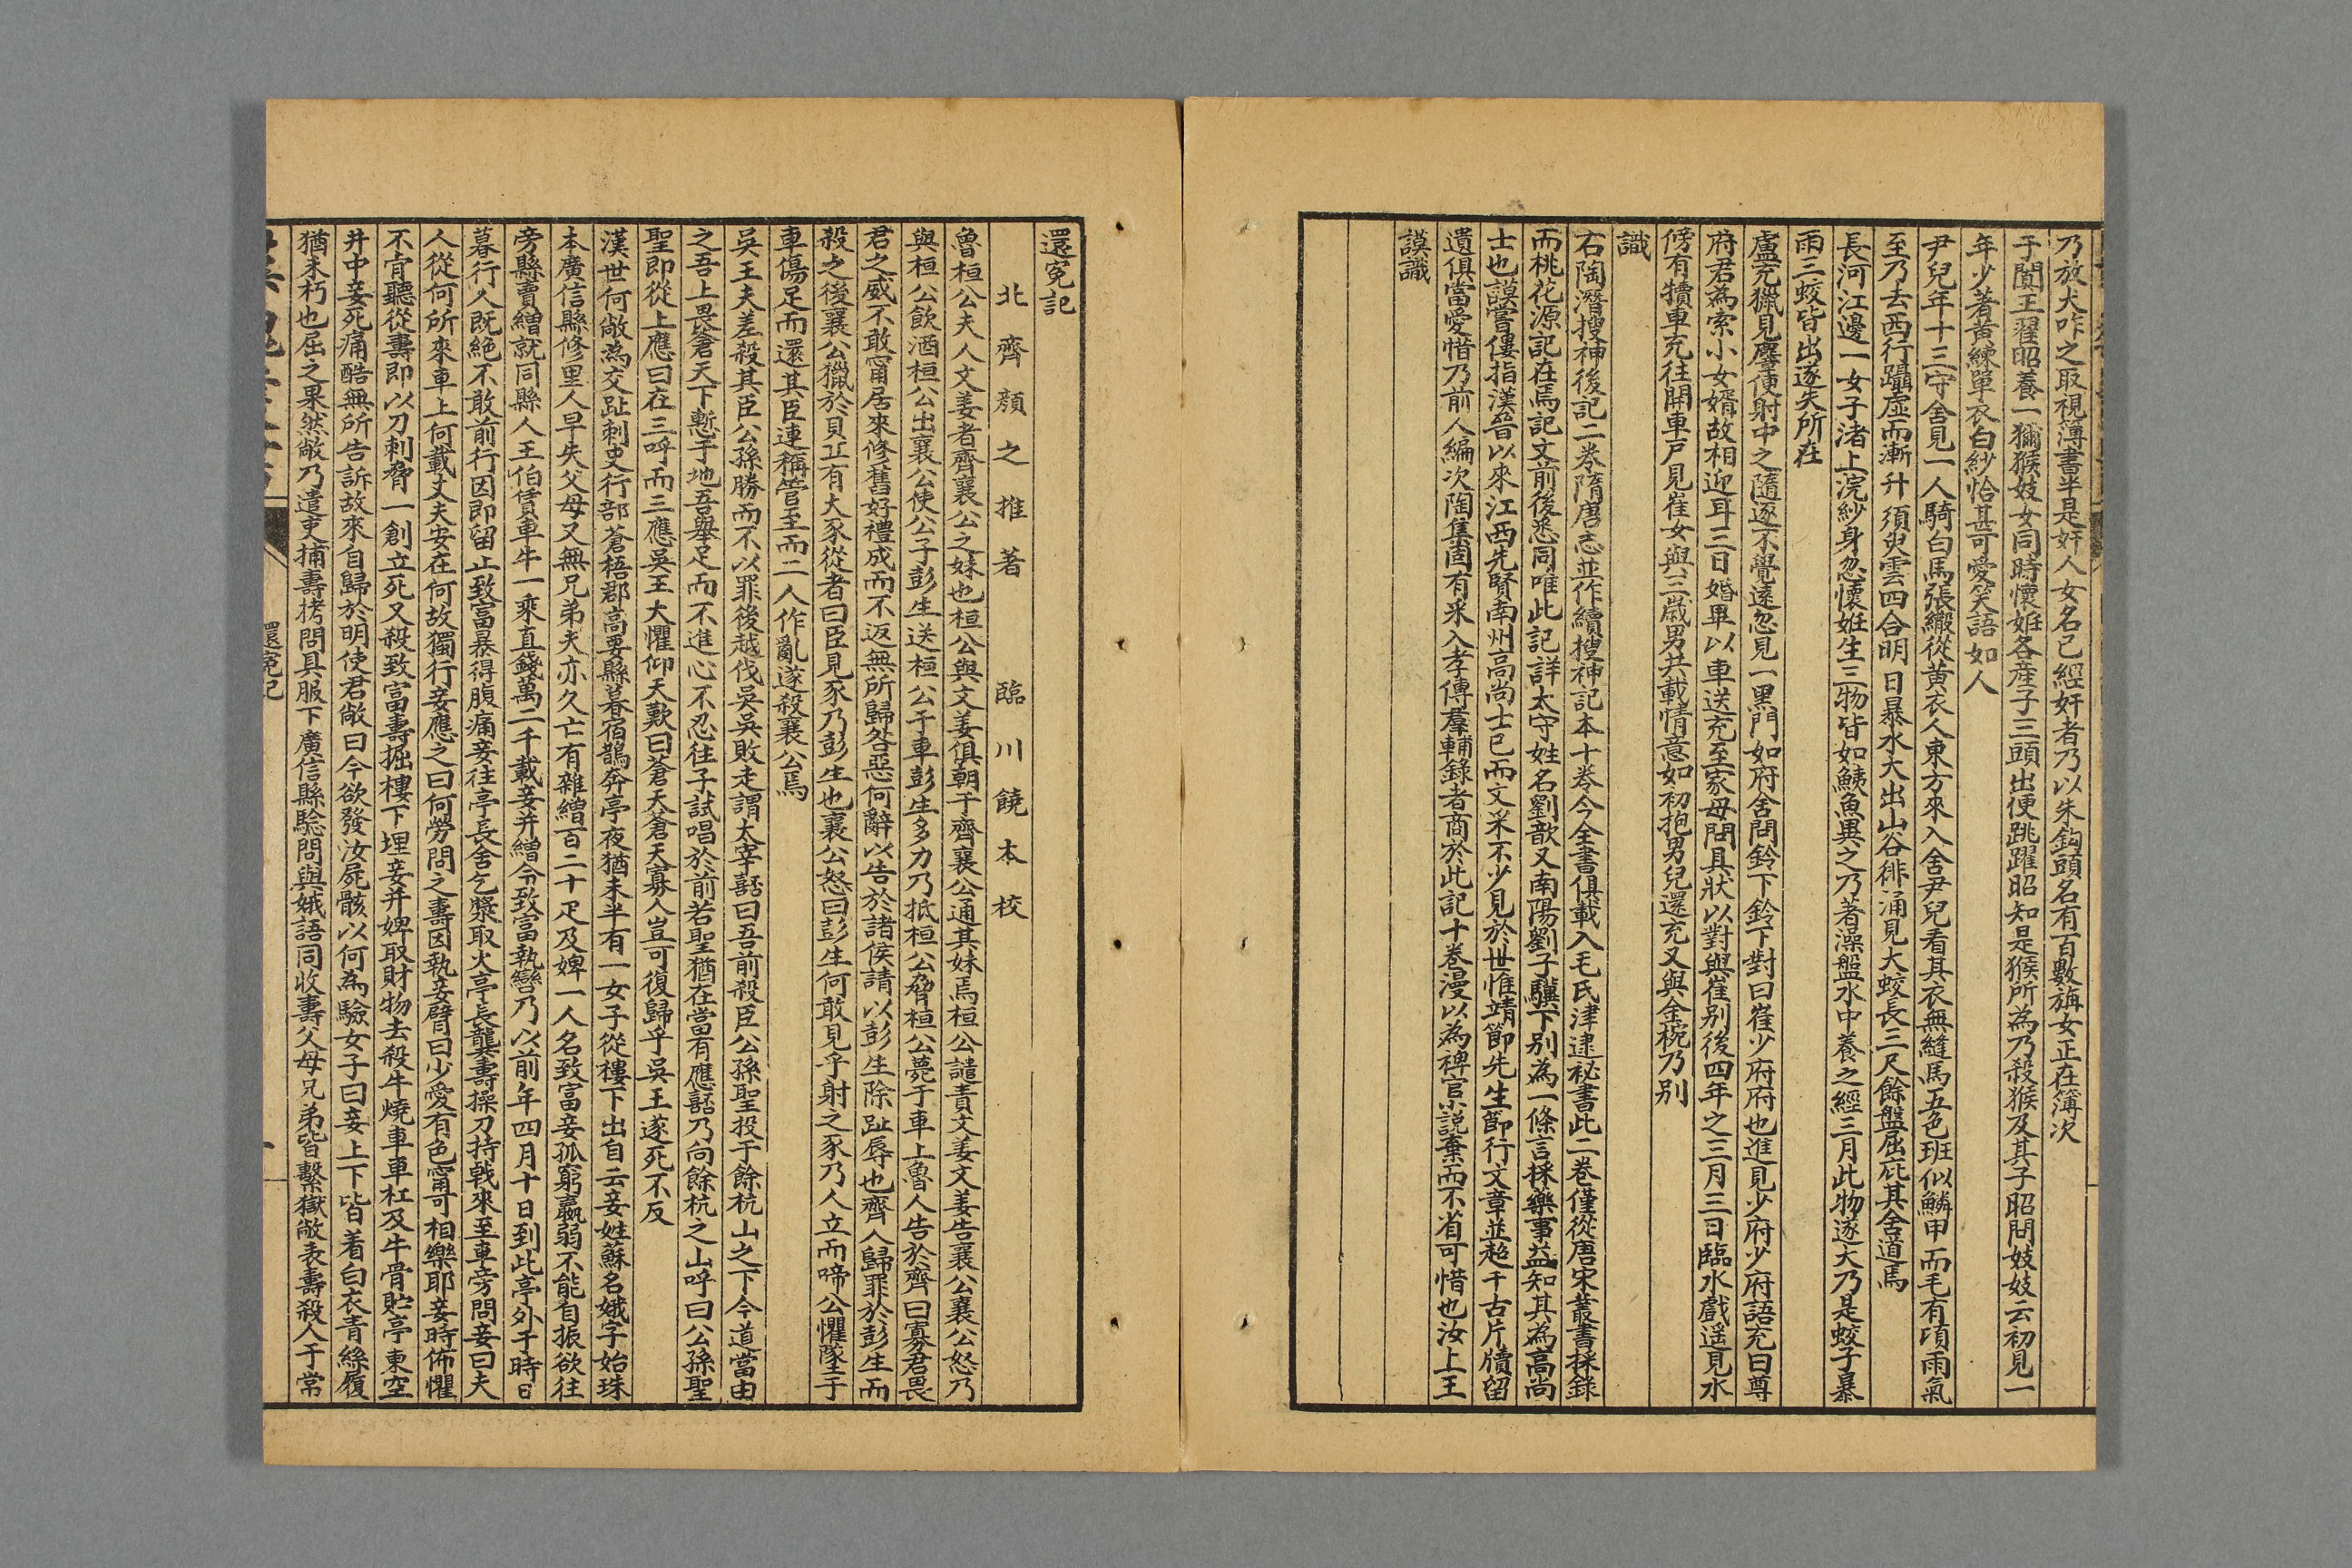 乃放犬咋之取視簿書半是奸人女名已經奸者乃以朱鈎頭名有百數旃女正在簿次
于闐王翟昭養一獼猴妓女同時懷妊各產子三頭出便跳躍昭知是猴所為乃殺猴及其子昭問妓妓云初見一
年少著黃練單衣白紗恰甚可愛笑語如人
尹兒年十三守舍見一人騎白馬張繖從黃衣人東方來入舍尹兒看其衣無縫馬五色班似鱗甲而毛有頃雨氣
至乃去西行躡虛而漸升須臾雲四合明日暴水大出山谷徘涌見大蛟長三尺餘盤屈庇其舍道馬
長河江邊一女子渚上浣紗身忽懷妊生三物皆如鮧魚異之乃著澡盤水中養之經三月此物遂大乃是蛟子暴
雨三蛟皆出遂失所在
盧充獵見麞便射中之隨逐不覺遠忽見一黑門如府舍問鈴下鈴下對曰崔少府府也進見少府少府語充曰尊
府君為索小女婿故相迎耳三日婚畢以車送充至家母問具狀以對與崔别後四年之三月三日臨水戲遥見水
傍有犢車充往開車戶見崔女與三歲男共載情意如初抱男兒還充又與金椀乃别
識
右陶潛搜神後記二卷隋唐志並作續搜神記本十卷今全書俱載入毛氏津逮祕書此二卷僅從唐宋叢書採錄
而桃花源記在焉記文前後悉同唯此記詳太守姓名劉歆又南陽劉子驥下别為一條言採藥事益知其為高尚
士也謨嘗僂指漢晉以來江西先賢南州高尚士已而文采不少見於世惟靖節先生節行文章並超千古片牘留
遺俱當愛惜乃前人編次陶集固有采入孝傳羣輔錄者商於此記十卷漫以為稗官小説棄而不省可惜也汝上王
謨識
還寃記
北齊顏之推著　臨川饒本校
魯桓公夫人文姜者齊襄公之妹也桓公與文姜俱朝于齊襄公通其妹焉桓公譴責文姜文姜告襄公襄公怒乃
與桓公飲酒桓公出襄公使公子彭生送桓公于車彭生多力乃抵桓公脅桓公薨于車上魯人告於齊曰寡君畏
君之威不敢甯居來修舊好禮成而不返無所歸咎惡何辭以告於諸侯請以彭生除趾辱也齊人歸罪於彭生而
殺之後襄公獵於貝丘有大豕從者曰臣見豕乃彭生也襄公怒曰彭生何敢見乎射之豕乃人立而啼公懼墜于
車傷足而還其臣連稱管至而二人作亂遂殺襄公焉
吳王夫差殺其臣公孫勝而不以罪後越伐吳吳敗走謂太宰嚭曰吾前殺臣公孫聖投于餘杭山之下今道當由
之吾上畏蒼天下慙于地吾舉足而不進心不忍往子試唱於前若聖猶在當有應嚭乃向餘杭之山呼曰公孫聖
聖即從上應曰在三呼而三應吳王大懼仰天歎曰蒼天蒼天寡人豈可復歸乎吳王遂死不反
漢世何敞為交趾刺史行部蒼梧郡高要縣暮宿鵲奔亭夜猶未半有一女子從樓下出自云妾姓蘇名娥字始珠
本廣信縣修里人早失父母又無兄弟夫亦久亡有雜繒百二十疋及婢一人名致富妾孤窮羸弱不能自振欲往
旁縣賣繒就同縣人王伯賃車牛一乘直錢萬二千載妾并繒令致富執轡乃以前年四月十日到此亭外于時日
暮行人既絶不敢前行因即留止致富暴得腹痛妾往亭長舍乞漿取火亭長龔壽操刀持戟來至車旁問妾曰夫
人從何所來車上何載丈夫安在何故獨行妾應之曰何勞問之壽因執妾臂曰少愛有色甯可相樂耶妾時怖懼
不肯聽從壽即以刀刺脅一創立死又殺致富壽掘樓下埋妾并婢取財物去殺牛燒車車杠及牛骨貯亭東空
井中妾死痛酷無所告訴故來自歸於明使君敞曰今欲發汝屍骸以何為驗女子曰妾上下皆着白衣青絲履
猶未朽也屈之果然敞乃遣吏捕壽拷問具服下廣信縣驗問與娥語同收壽父母兄弟皆繫獄敞表壽殺人于常
還寃記
一